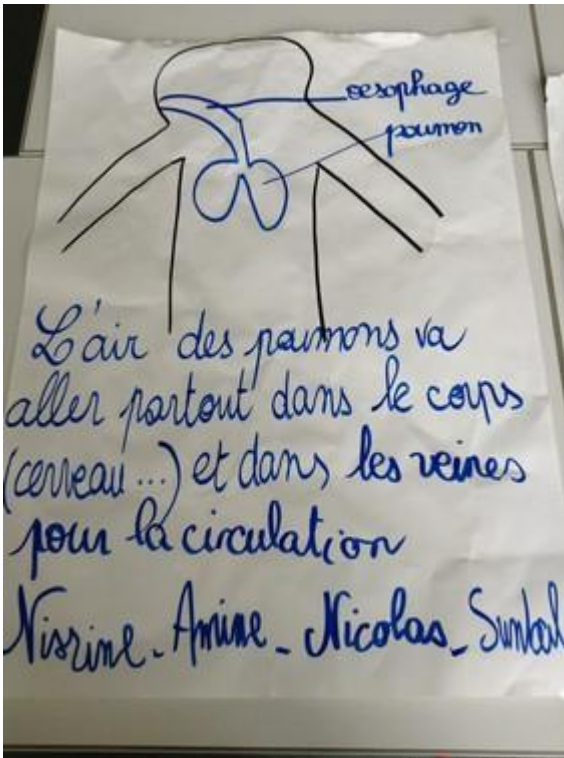 œsophage
poumon
L'air des poumons va
aller partout dans le corps
(cerveau...) et dans les veines
pour la circulation
Nisrine_Amine_Nicolas_Sunbal